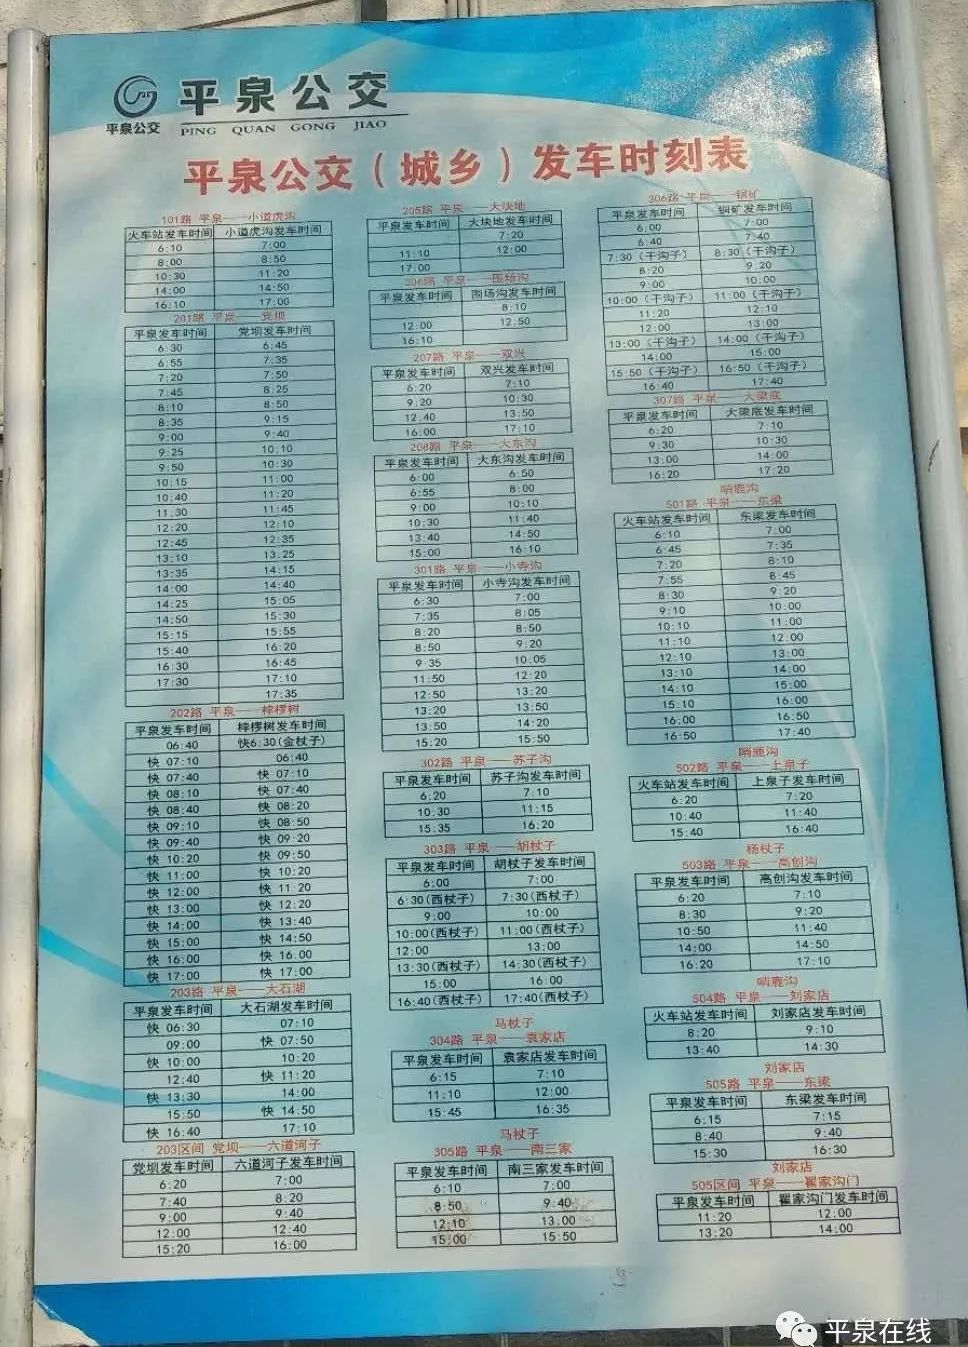 平泉公交
平泉公交
PING QUAN GONG JIAO
平泉公交（城乡）发车时刻表
101路 平泉——小道虎沟
火车站发车时间 小道虎沟发车时间
6:10 7:00
8:00 8:50
10:30 11:20
14:00 14:50
16:10 17:00
201路 平泉——党坝
平泉发车时间 党坝发车时间
6:30 6:45
6:55 7:35
7:20 7:50
7:45 8:25
8:10 8:50
8:35 9:15
9:00 9:40
9:25 10:10
9:50 10:30
10:15 11:00
10:40 11:20
11:30 11:45
12:20 12:10
12:45 12:35
13:10 13:25
13:35 14:15
14:00 14:40
14:25 15:05
14:50 15:30
15:15 15:55
15:40 16:20
16:30 16:45
17:30 17:10
17:35
202路 平泉——桲椤树
平泉发车时间 桲椤树发车时间
06:40 快6:30(金杖子)
快 07:10 06:40
快 07:40 快 07:10
快 08:10 快 07:40
快 08:40 快 08:20
快 09:10 快 08:50
快 09:40 快 09:20
快 10:20 快 09:50
快 11:00 快 10:20
快 12:00 快 11:20
快 13:00 快 12:20
快 14:00 快 13:40
快 15:00 快 14:50
快 16:00 快 16:00
快 17:00 快 17:00
203路 平泉——大石湖
平泉发车时间 大石湖发车时间
快 06:30 07:10
09:00 快 07:50
快 10:00 10:20
12:40 快 11:20
快 13:30 14:00
15:50 快 14:50
快 16:40 17:10
203区间 党坝——六道河子
党坝发车时间 六道河子发车时间
6:20 7:00
7:40 8:20
9:00 9:40
12:00 12:40
15:20 16:00
205路 平泉——大块地
平泉发车时间 大块地发车时间
7:20
11:10 12:00
17:00
206路 平泉——围场沟
平泉发车时间 围场沟发车时间
8:10
12:00 12:50
16:10
207路 平泉——双兴
平泉发车时间 双兴发车时间
6:20 7:10
9:20 10:30
12:40 13:50
16:00 17:10
208路 平泉——大东沟
平泉发车时间 大东沟发车时间
6:00 6:50
6:55 8:00
9:00 10:10
10:30 11:40
13:40 14:50
15:00 16:10
301路 平泉——小寺沟
平泉发车时间 小寺沟发车时间
6:30 7:00
7:35 8:05
8:20 8:50
8:50 9:20
9:35 10:05
11:50 12:20
12:50 13:20
13:20 13:50
13:50 14:20
15:20 15:50
302路 平泉——苏子沟
平泉发车时间 苏子沟发车时间
6:20 7:10
10:30 11:15
15:35 16:20
303路 平泉——胡杖子
平泉发车时间 胡杖子发车时间
6:00 7:00
6:30(西杖子) 7:30(西杖子)
9:00 10:00
10:00(西杖子) 11:00(西杖子)
12:00 13:00
13:30(西杖子) 14:30(西杖子)
15:00 16:00
16:40(西杖子) 17:40(西杖子)
马杖子
304路 平泉——袁家店
平泉发车时间 袁家店发车时间
6:15 7:10
11:10 12:00
15:45 16:35
马杖子
305路 平泉——南三家
平泉发车时间 南三家发车时间
6:10 7:00
8:50 9:40
12:10 13:00
15:00 15:50
306路 平泉——铜矿
平泉发车时间 铜矿发车时间
6:00 7:00
6:40 7:40
7:30(干沟子) 8:30(干沟子)
8:20 9:20
9:00 10:00
10:00(干沟子) 11:00(干沟子)
11:20 12:10
12:00 13:00
13:00(干沟子) 14:00(干沟子)
14:00 15:00
15:50(干沟子) 16:50(干沟子)
16:40 17:40
307路 平泉——大梁底
平泉发车时间 大梁底发车时间
6:20 7:10
9:30 10:30
13:00 14:00
16:20 17:20
哨鹿沟
501路 平泉——东梁
火车站发车时间 东梁发车时间
6:10 7:00
6:45 7:35
7:20 8:10
7:55 8:45
8:30 9:20
9:10 10:00
10:10 11:00
11:10 12:00
12:10 13:00
13:10 14:00
14:10 15:00
15:10 16:00
16:00 16:50
16:50 17:40
哨鹿沟
502路 平泉——上泉子
火车站发车时间 上泉子发车时间
6:20 7:20
10:40 11:40
15:40 16:40
杨杖子
503路 平泉——高创沟
平泉发车时间 高创沟发车时间
6:20 7:10
8:30 9:20
10:50 11:40
14:00 14:50
16:20 17:10
哨鹿沟
504路 平泉——刘家店
火车站发车时间 刘家店发车时间
8:20 9:10
13:40 14:30
刘家店
505路 平泉——东梁
平泉发车时间 东梁发车时间
6:15 7:15
8:40 9:40
15:30 16:30
刘家店
505区间 平泉——翟家沟门
平泉发车时间 翟家沟门发车时间
11:20 12:00
13:20 14:00
平泉在线